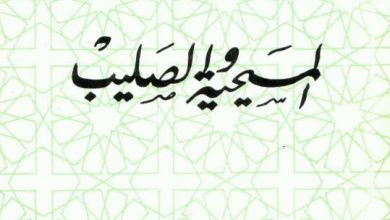 المسيحية والصليبْ